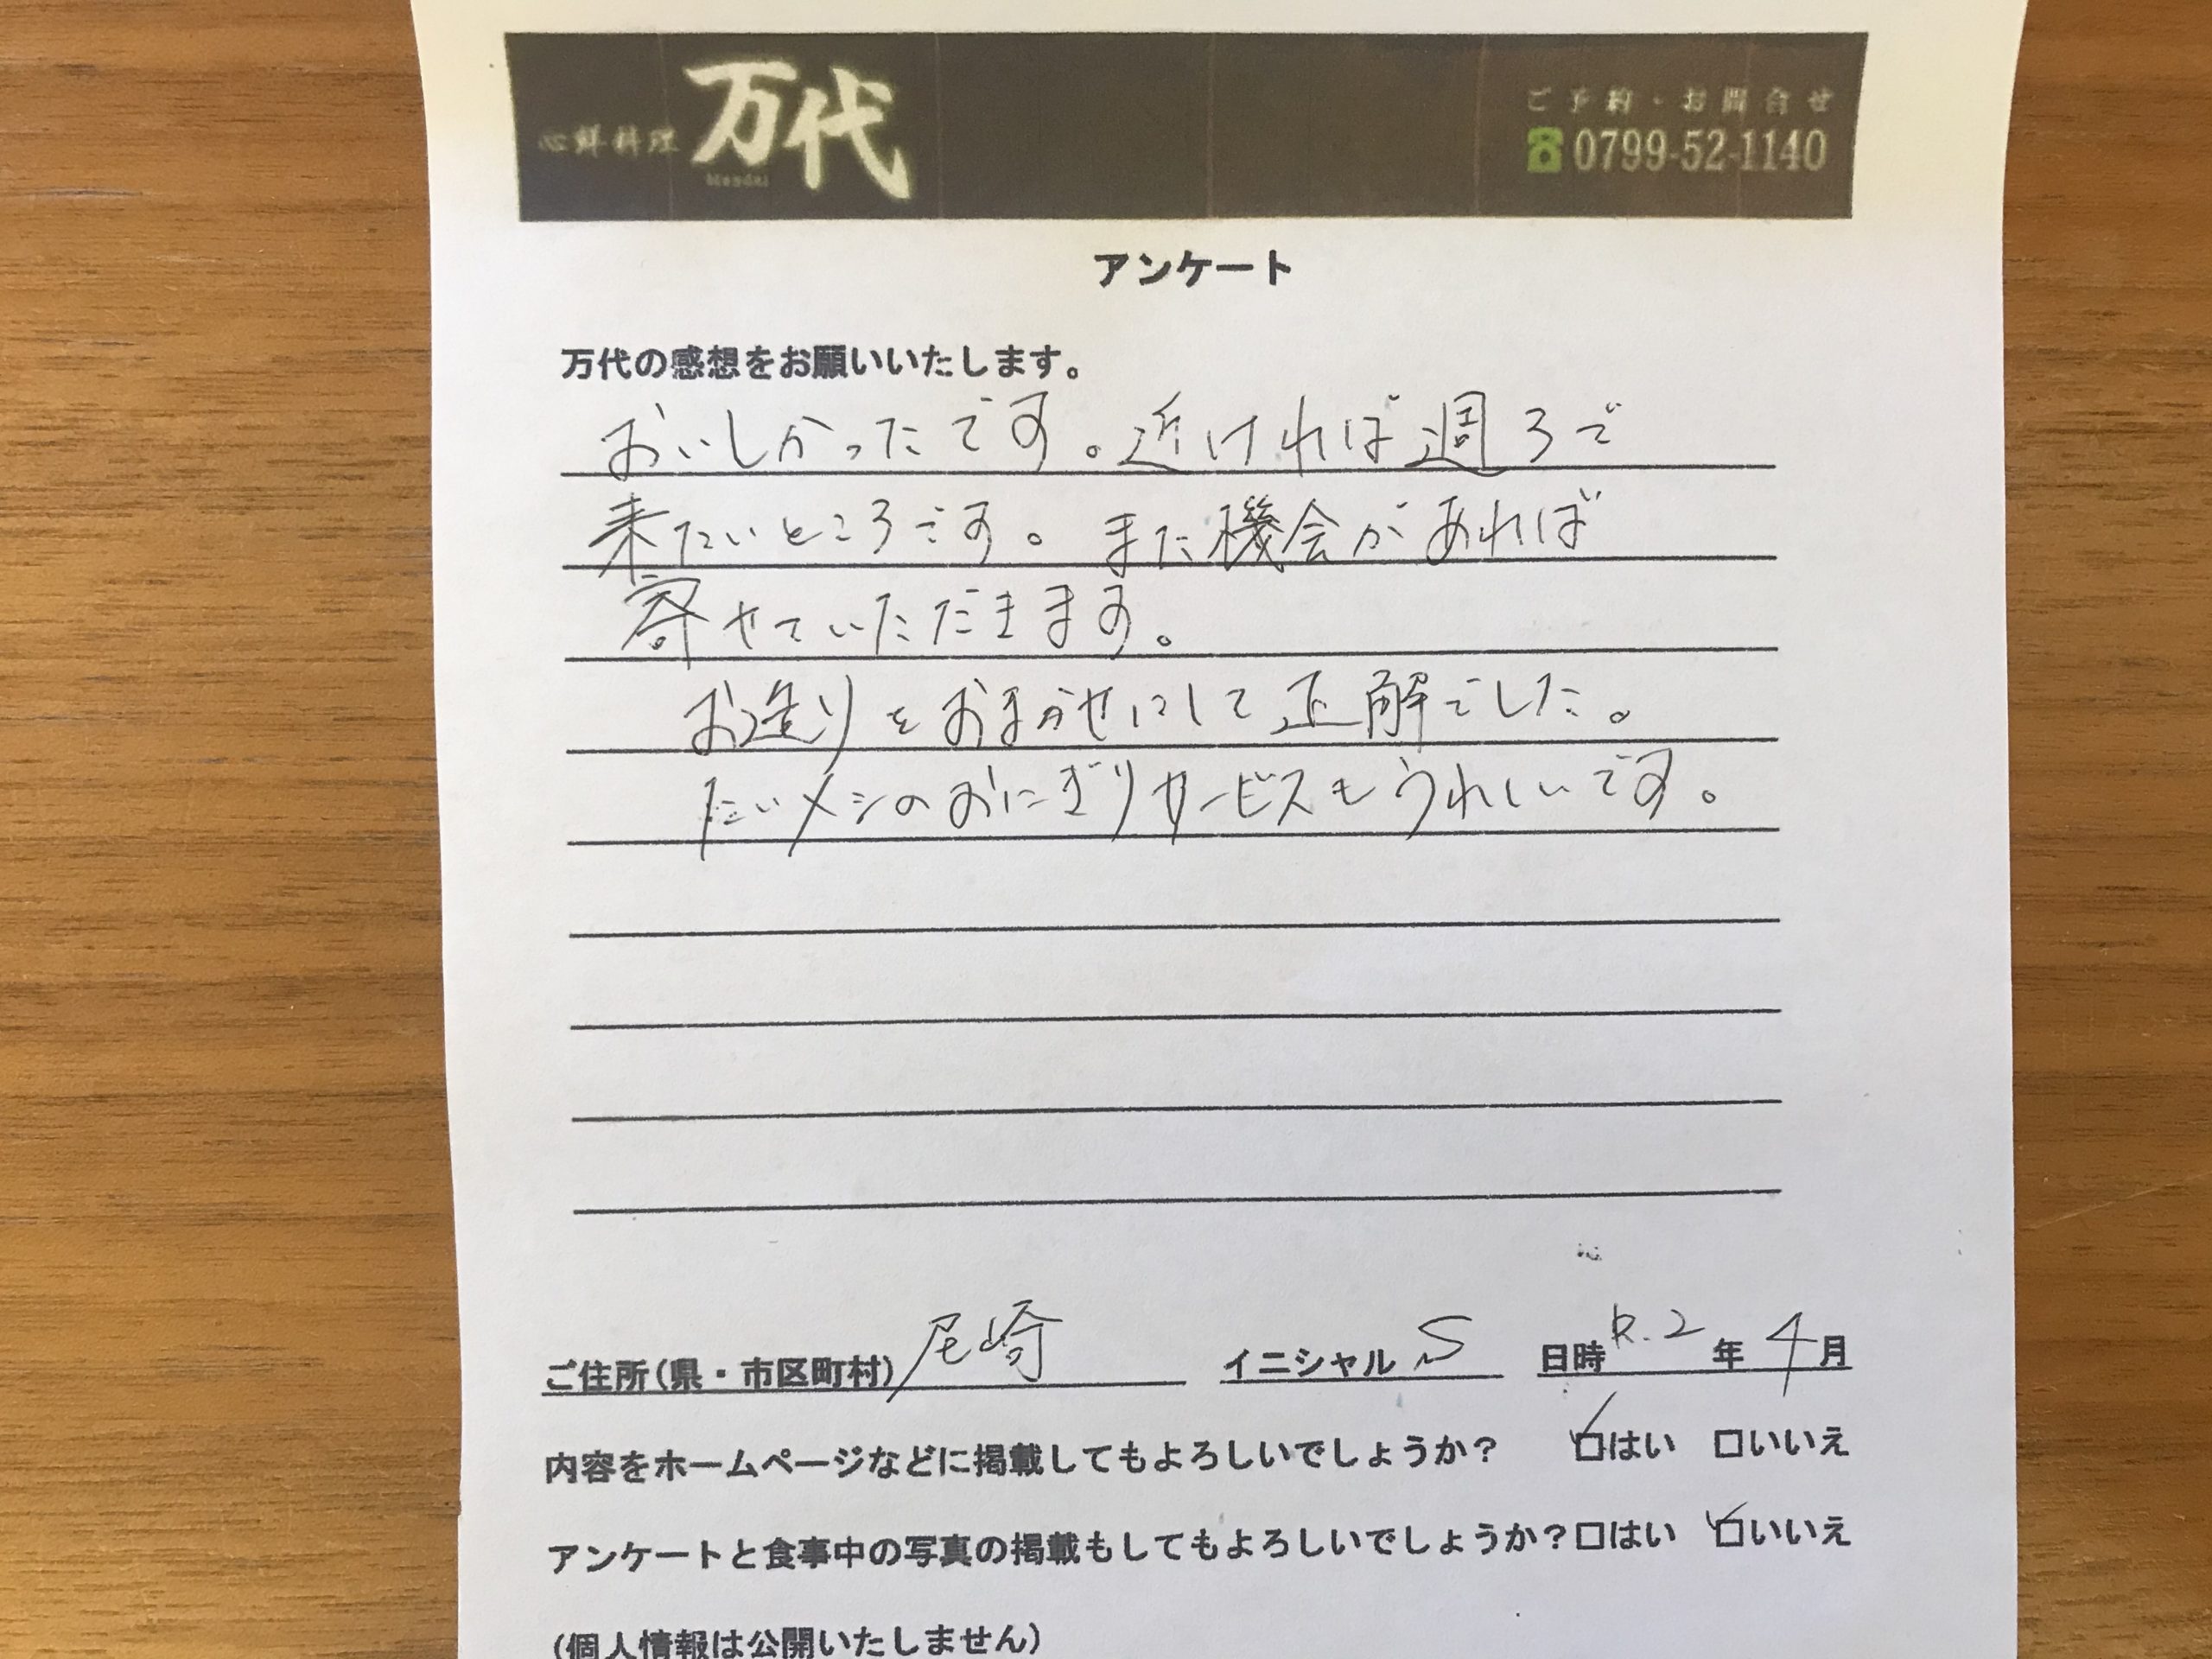 心鮮料理 万代 Mandai
ご予約・お問合せ
0799-52-1140
アンケート
万代の感想をお願いいたします。
おいしかったです。近ければ週3で
来たいところです。また機会があれば
寄せていただきます。
お造りをおまかせにして正解でした。
たいメシのおにぎりサービスもうれしいです。
ご住所(県・市区町村) 尼崎 イニシャル S 日時 R.2 年 4 月
内容をホームページなどに掲載してもよろしいでしょうか? ☑はい □いいえ
アンケートと食事中の写真の掲載もしてもよろしいでしょうか?□はい ☑いいえ
(個人情報は公開いたしません)